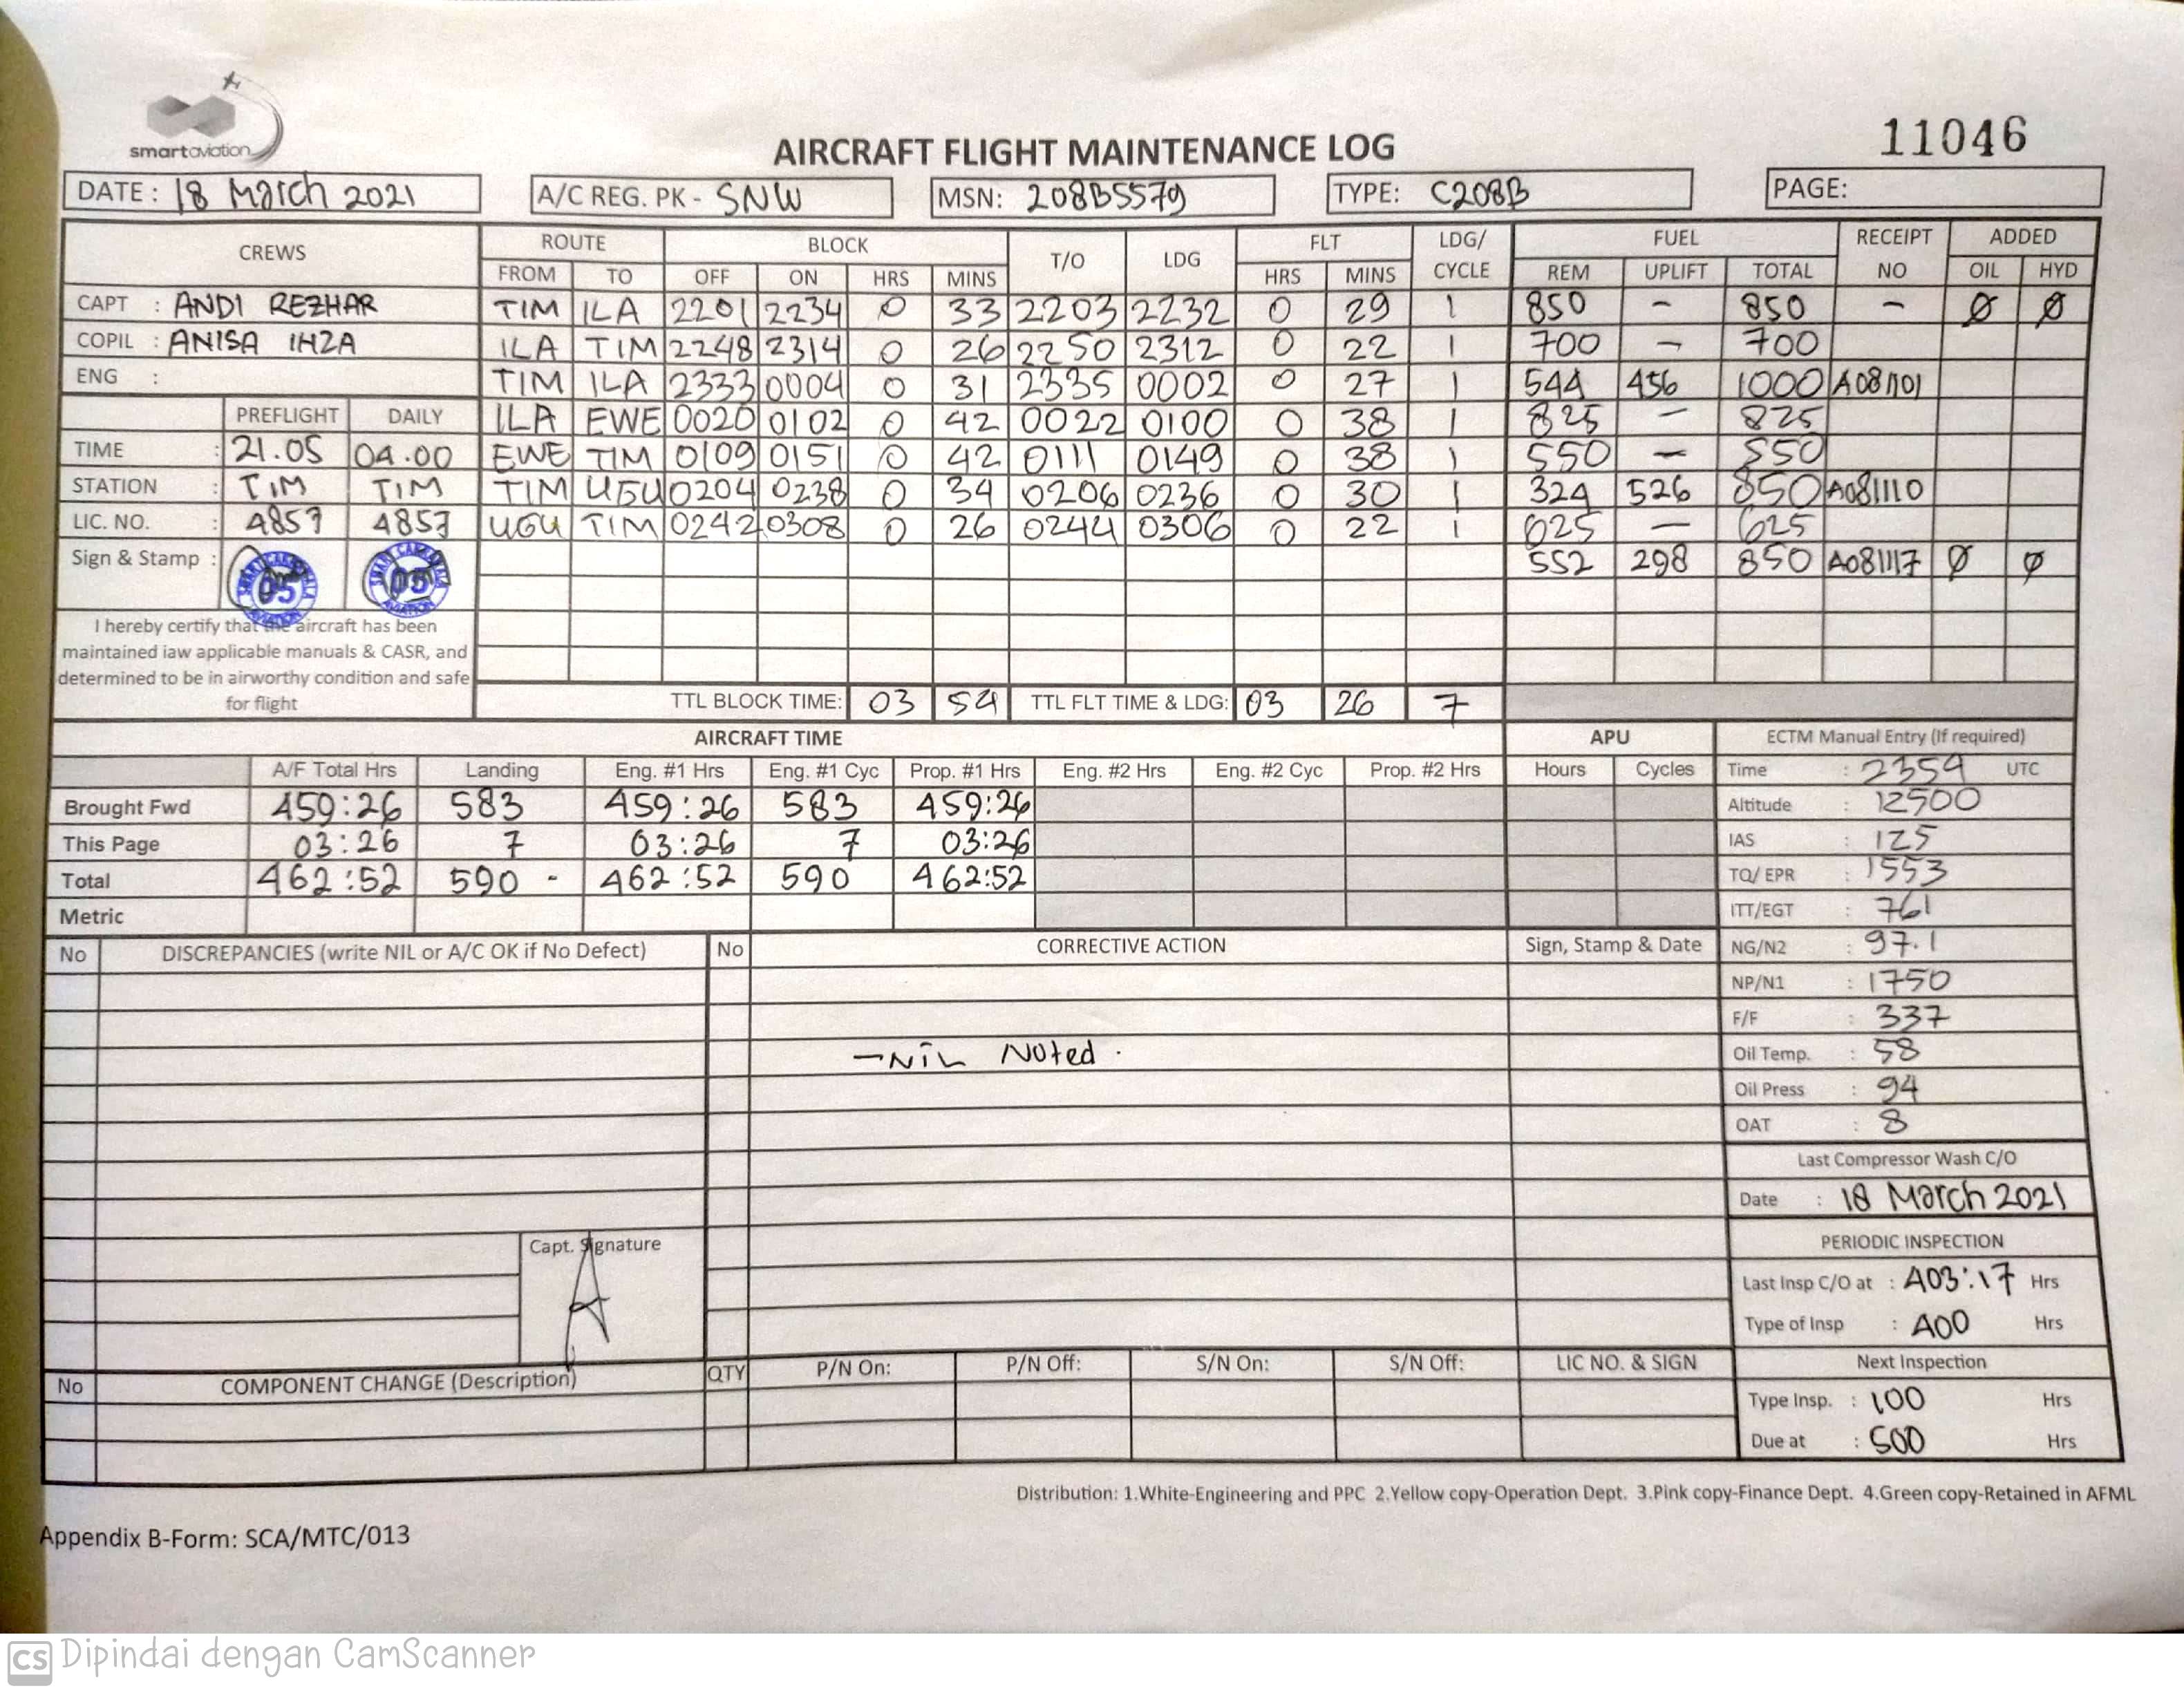 smartaviation
11046
AIRCRAFT FLIGHT MAINTENANCE LOG
DATE : 18 March 2021 A/C REG. PK - SNW MSN: 208B5579 TYPE: C208B PAGE:
CREWS ROUTE BLOCK T/O LDG FLT LDG/ FUEL RECEIPT ADDED
FROM TO OFF ON HRS MINS HRS MINS CYCLE REM UPLIFT TOTAL NO OIL HYD
CAPT : ANDI REZHAR TIM ILA 2201 2234 0 33 2203 2232 0 29 1 850 - 850 - Ø Ø
COPIL : ANISA IHZA ILA TIM 2248 2314 0 26 2250 2312 0 22 1 700 - 700
ENG : TIM ILA 2333 0004 0 31 2335 0002 0 27 1 544 456 1000 A081101
PREFLIGHT DAILY ILA EWE 0020 0102 0 42 0022 0100 0 38 1 825 - 825
TIME : 21.05 04.00 EWE TIM 0109 0151 0 42 0111 0149 0 38 1 550 - 550
STATION : TIM TIM TIM UGU 0204 0238 0 34 0206 0236 0 30 1 324 526 850 A081110
LIC. NO. : 4857 4857 UGU TIM 0242 0308 0 26 0244 0306 0 22 1 625 - 625
Sign & Stamp : 05 05 552 298 850 A081117 Ø Ø
I hereby certify that the aircraft has been
maintained iaw applicable manuals & CASR, and
determined to be in airworthy condition and safe
for flight
TTL BLOCK TIME: 03 54 TTL FLT TIME & LDG: 03 26 7
AIRCRAFT TIME APU ECTM Manual Entry (If required)
A/F Total Hrs Landing Eng. #1 Hrs Eng. #1 Cyc Prop. #1 Hrs Eng. #2 Hrs Eng. #2 Cyc Prop. #2 Hrs Hours Cycles Time : 2354 UTC
Brought Fwd 459:26 583 459:26 583 459:26 Altitude : 12500
This Page 03:26 7 03:26 7 03:26 IAS : 125
Total 462:52 590 - 462:52 590 462:52 TQ/ EPR : 1553
Metric ITT/EGT : 761
No DISCREPANCIES (write NIL or A/C OK if No Defect) No CORRECTIVE ACTION Sign, Stamp & Date NG/N2 : 97.1
NP/N1 : 1750
F/F : 337
- NIL Noted . Oil Temp. : 58
Oil Press : 94
OAT : 8
Last Compressor Wash C/O
Date : 18 March 2021
Capt. Signature PERIODIC INSPECTION
Last Insp C/O at : 403:17 Hrs
Type of Insp : 400 Hrs
No COMPONENT CHANGE (Description) QTY P/N On: P/N Off: S/N On: S/N Off: LIC NO. & SIGN Next Inspection
Type Insp. : 100 Hrs
Due at : 500 Hrs
Distribution: 1.White-Engineering and PPC 2.Yellow copy-Operation Dept. 3.Pink copy-Finance Dept. 4.Green copy-Retained in AFML
Appendix B-Form: SCA/MTC/013
CS Dipindai dengan CamScanner